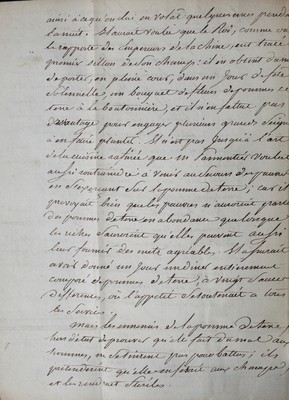 ainsi à ce qu'on lui en volat quelques unes pendant
la nuit. Il aurait voulu que le Roi, comme on
le rapporte des Empereurs de la Chine, eut tracé
premier sillon de son champ; il en obtint du moins
de porter, en pleine cour, dans un jour de fête
solennelle, un bouquet de fleurs de pommes de
terre à la boutonnière, et il n'en fallut pas
davantage pour engager plusieurs grands Seigneurs
à en faire planter. Il n'est pas jusqu'à l'art
de la cuisine rafinée que m Parmentier voulut
aussi contraindre à venir au secours des pauvres
en s'exerçant sur la pomme de terre; car il
prévoyait bien que les pauvres n'auroient partout
des pommes de terre en abondance que lorsque
les riches sauroient qu'elles peuvent aussi
leur fournir des mets agréables. Il assurait
avoir donné un jour un diner entièrement
composé de pommes de terre, à vingt sauces
différentes, où l'appétit se soutenait à tous
les services.
Mais les ennemis de la pomme de terre,
hors d'état de prouver qu'elle fait du mal aux
hommes, ne se tinrent pas pour battus; ils
prétendirent qu'elle en faisait aux champs
et les rendait stériles.